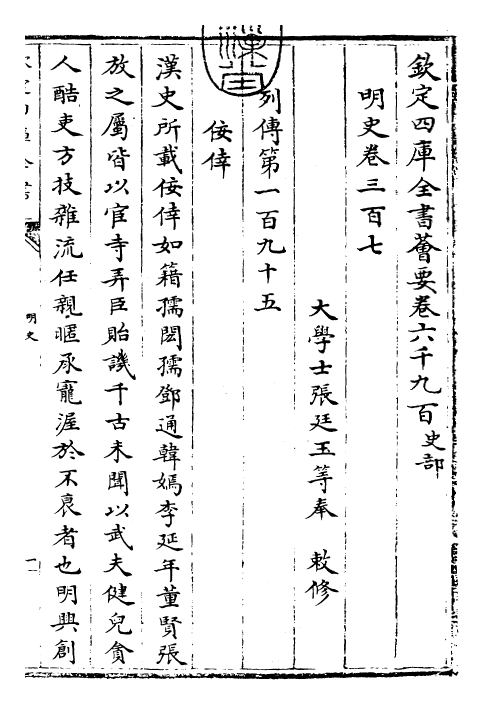 欽定四庫全書薈要卷六千九百史部
明史卷三百七
大學士張廷玉等奉　敕修
列傳第一百九十五
佞倖
漢史所載佞倖如籍孺閎孺鄧通韓嫣李延年董賢張
放之屬皆以宦寺弄臣貽譏千古未聞以武夫健兒貪
人酷吏方技雜流任親暱承寵渥於不衰者也明興創
明史
一